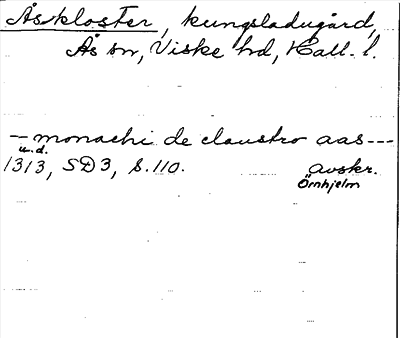 Åskloster, kungsladugård,
Ås sn, Viske hd, Hall. l.
— monachi de claustro aas ---
u.d.
1313, SD3, s. 110. avskr.
Örnhjelm